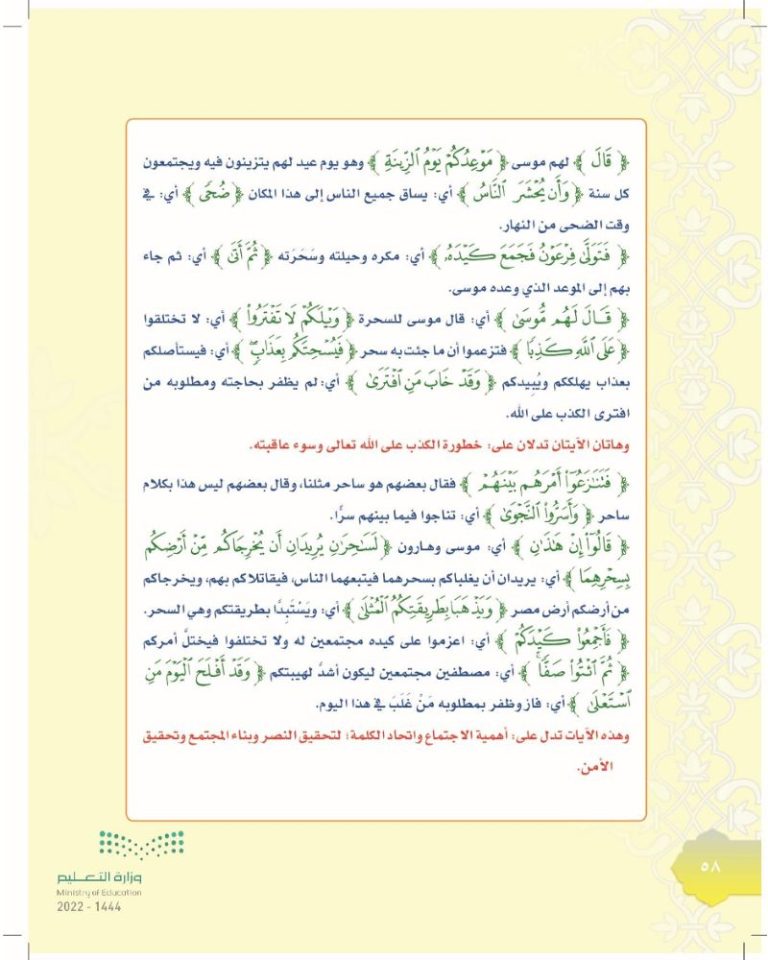 ﴿ قَالَ ﴾ لهم موسى ﴿ مَوْعِدُكُمْ يَوْمُ ٱلزِّينَةِ ﴾ وهو يوم عيد لهم يتزينون فيه ويجتمعون
كل سنة ﴿ وَأَن يُحْشَرَ ٱلنَّاسُ ﴾ أي: يساق جميع الناس إلى هذا المكان ﴿ ضُحًى ﴾ أي: في
وقت الضحى من النهار.
﴿ فَتَوَلَّىٰ فِرْعَوْنُ فَجَمَعَ كَيْدَهُۥ ﴾ أي: مكره وحيلته وسَحَرَته ﴿ ثُمَّ أَتَىٰ ﴾ أي: ثم جاء
بهم إلى الموعد الذي وعده موسى.
﴿ قَالَ لَهُم مُّوسَىٰ ﴾ أي: قال موسى للسحرة ﴿ وَيْلَكُمْ لَا تَفْتَرُوا۟ ﴾ أي: لا تختلقوا
﴿ عَلَى ٱللَّهِ كَذِبًا ﴾ فتزعموا أن ما جئت به سحر ﴿ فَيُسْحِتَكُم بِعَذَابٍ ۖ ﴾ أي: فيستأصلكم
بعذاب يهلككم ويُبِيدكم ﴿ وَقَدْ خَابَ مَنِ ٱفْتَرَىٰ ﴾ أي: لم يظفر بحاجته ومطلوبه من
افترى الكذب على الله.
وهاتان الآيتان تدلان على: خطورة الكذب على الله تعالى وسوء عاقبته.
﴿ فَتَنَـٰزَعُوٓا۟ أَمْرَهُم بَيْنَهُمْ ﴾ فقال بعضهم هو ساحر مثلنا، وقال بعضهم ليس هذا بكلام
ساحر ﴿ وَأَسَرُّوا۟ ٱلنَّجْوَىٰ ﴾ أي: تناجوا فيما بينهم سرًّا.
﴿ قَالُوٓا۟ إِنْ هَـٰذَٰنِ ﴾ أي: موسى وهارون ﴿ لَسَـٰحِرَٰنِ يُرِيدَانِ أَن يُخْرِجَاكُم مِّنْ أَرْضِكُم
بِسِحْرِهِمَا ﴾ أي: يريدان أن يغلباكم بسحرهما فيتبعهما الناس، فيقاتلاكم بهم، ويخرجاكم
من أرضكم أرض مصر ﴿ وَيَذْهَبَا بِطَرِيقَتِكُمُ ٱلْمُثْلَىٰ ﴾ أي: ويَسْتَبِدَّا بطريقتكم وهي السحر.
﴿ فَأَجْمِعُوا۟ كَيْدَكُمْ ﴾ أي: اعزموا على كيده مجتمعين له ولا تختلفوا فيختلَّ أمركم
﴿ ثُمَّ ٱئْتُوا۟ صَفًّا ۚ ﴾ أي: مصطفين مجتمعين ليكون أشدَّ لهيبتكم ﴿ وَقَدْ أَفْلَحَ ٱلْيَوْمَ مَنِ
ٱسْتَعْلَىٰ ﴾ أي: فاز وظفر بمطلوبه مَنْ غَلَبَ في هذا اليوم.
وهذه الآيات تدل على: أهمية الاجتماع واتحاد الكلمة؛ لتحقيق النصر وبناء المجتمع وتحقيق
الأمن.
٥٨
وزارة التعليم
Ministry of Education
2022 - 1444